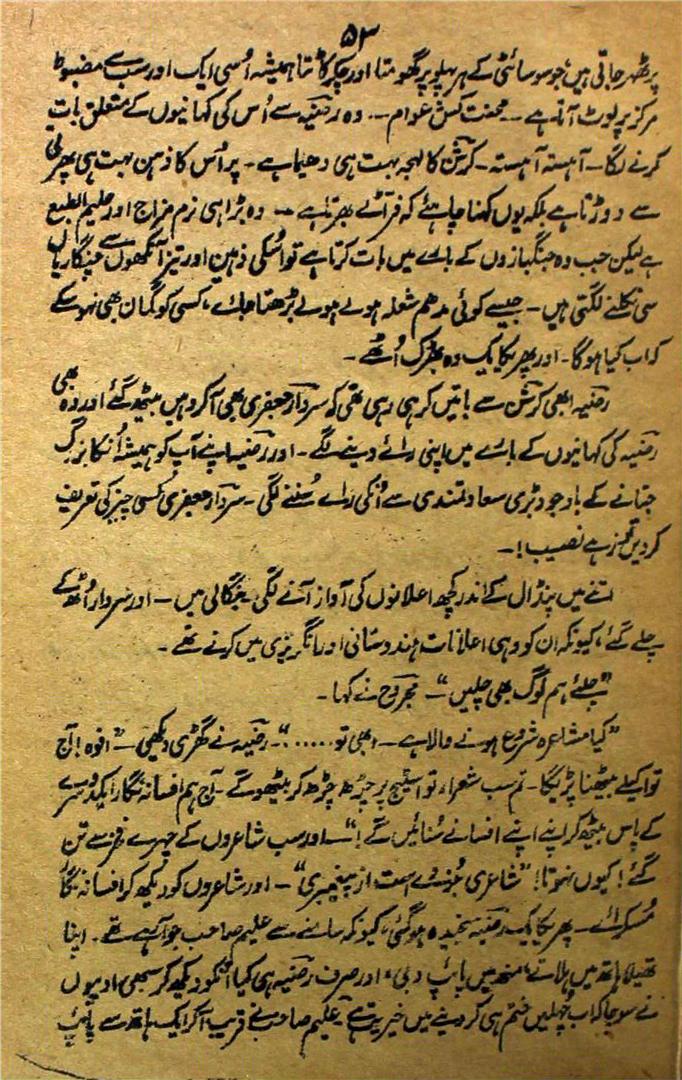 ۵۳
پر ٹھہر جاتی ہیں، جو سوسائٹی کے ہر پہلو پر گھومتا اور چکر کاٹتا ہمیشہ اُسی ایک اور سب سے مضبوط
مرکز پر لوٹ آتا ہے ــ محنت کش عوام ــ۔ وہ رضیہ سے اُس کی کہانیوں کے متعلق بات
کرنے لگا ــ آہستہ آہستہ ــ کرشن کا لہجہ بہت ہی دھیما ہے ــ پر اُس کا ذہن بہت ہی پھرتی
سے دوڑتا ہے بلکہ یوں کہنا چاہئے کہ فرّاٹے بھرتا ہے ــ وہ بڑا ہی نرم مزاج اور حلیم الطبع
ہے لیکن جب وہ جنگبازوں کے بارے میں بات کرتا ہے تو اُسکی ذہین اور تیز آنکھوں سے چنگاریاں
سی نکلنے لگتی ہیں ــ جیسے کوئی مدھم شعلہ ہولے ہولے بڑھتا جائے، کسی کو گمان بھی نہ ہو سکے
کہ اب کیا ہوگا ــ اور پھر یکایک وہ بھڑک اُٹھے ــ
رضیہ ابھی کرشن سے باتیں کر ہی رہی تھی کہ سردار جعفری بھی آکر وہیں بیٹھ گئے اور وہ بھی
رضیہ کی کہانیوں کے بارے میں اپنی رائے دینے لگے ــ اور رضیہ اپنے آپ کو ہمیشہ اُنکا بزرگ
جتانے کے باوجود بڑی سعادتمندی سے اُنکی رائے سُننے لگی ــ سردار جعفری کسی چیز کی تعریف
کر دیں تو زہے نصیب! ــ
اتنے میں پنڈال کے اندر کچھ اعلانوں کی آواز آنے لگی۔ بنگالی میں ــ اور سردار اُٹھ کے
چلے گئے، کیونکہ ان کو وہی اعلانات ہندوستانی اور انگریزی میں کرنے تھے ــ
”چلئے ہم لوگ بھی چلیں“ ــ مجروح نے کہا ــ
”کیا مشاعرہ شروع ہونے والا ہے ــ ابھی تو ......“ ــ رضیہ نے گھڑی دیکھی ــ ”افوہ! آج
تو اکیلے بیٹھنا پڑیگا ــ تم سب شعراء تو اسٹیج پر چڑھ چڑھ کر بیٹھو گے ــ آج ہم افسانہ نگار ایک دوسرے
کے پاس بیٹھ کر اپنے اپنے افسانے سُنائیں گے!“ ــ اور سب شاعروں کے چہرے فخر سے تن
گئے! کیوں نہ ہوتا! ”شاعری جُزوے است از پیغمبری“ ــ اور شاعروں کو دیکھ کر افسانہ نگار
مُسکرائے ــ پھر یکایک رضیہ سنجیدہ ہوگئی، کیونکہ سامنے سے علیم صاحب جو آرہے تھے ــ اپنا
تھیلا ہاتھ میں ہلاتے، منھ میں پائپ دبی، اور صرف رضیہ ہی کیا اُنکو دیکھ کر سبھی ادیبوں
نے سوچا کہ اب چُہلیں ختم ہی کر دینے میں خیریت ہے ــ علیم صاحب نے قریب آکر ایک ہاتھ سے پائپ